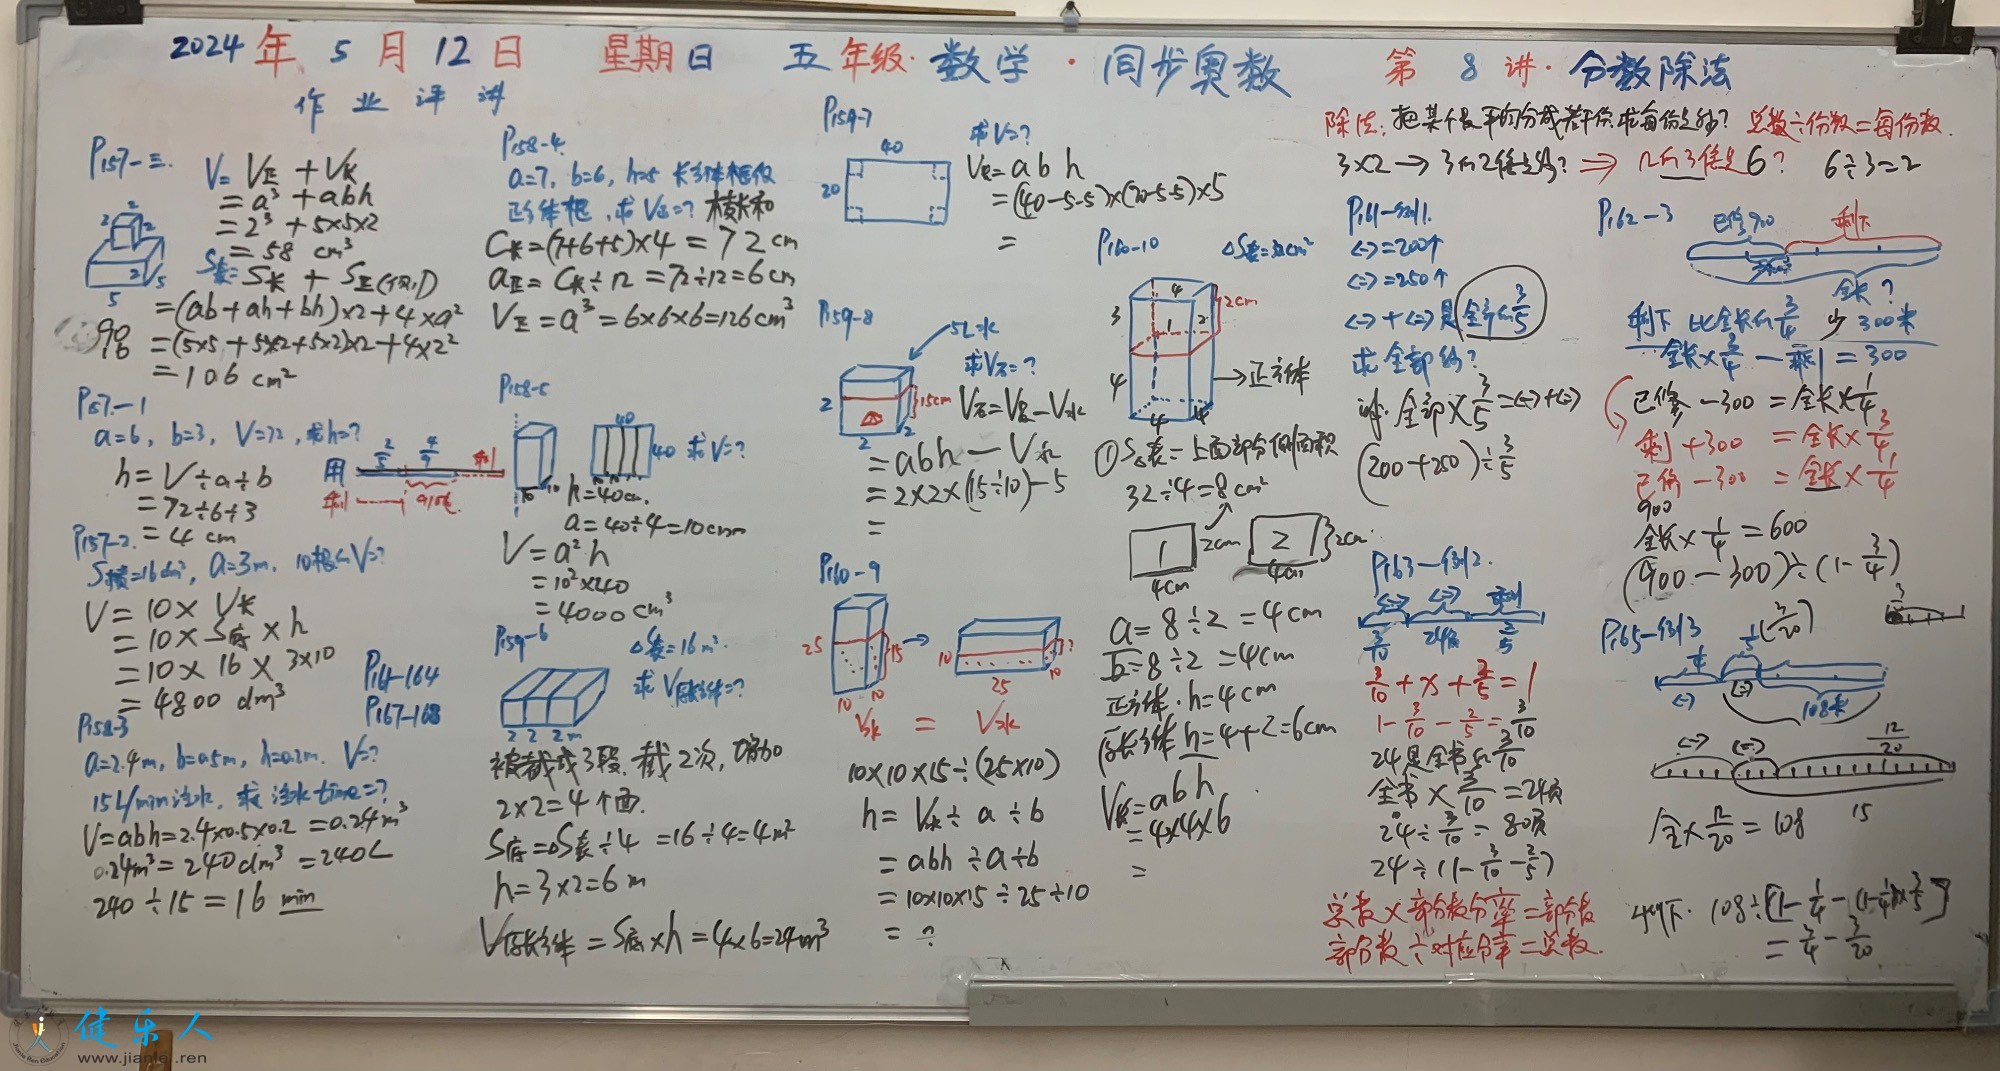 2024年5月12日 星期日 五年级·数学·同步奥数 第8讲·分数除法
作业评讲
P157-三.
V=V正+V长
=a³+abh
=2³+5×5×2
=58 cm³
2
2
2
2
5
5
S表=S长+S正(侧)
=(ab+ah+bh)×2+4×a²
=(5×5+5×2+5×2)×2+4×2²
=106 cm²
90
16
P157-1
a=6, b=3, V=72, 求h=?
h=V÷a÷b
=72÷6÷3
=4 cm
用
2/5
4/9
剩
剩
P157-2.
S横=16dm², a=3m, 10根 V=?
V=10×V长
=10×S底×h
=10×16×3×10
=4800 dm³
P161-164
P167-168
P158-3
a=2.4m, b=0.5m, h=0.2m. V=?
15L/min注水, 求注水time=?
V=abh=2.4×0.5×0.2=0.24m³
0.24m³=240dm³=240L
240÷15=16 min
P158-4
a=7, b=6, h=5 长方体框仅
正方体框, 求V正=? 棱长和
C长=(7+6+5)×4=72cm
a正=C长÷12=72÷12=6cm
V正=a³=6×6×6=126cm³
P158-5
40
40 求V=?
10 10
h=40cm.
a=40÷4=10cm
V=a²h
=10²×40
=4000cm³
P159-6
△S表=16m²
求V原长方体=?
2 2 2m
被截成3段. 截2次, 增加
2×2=4个面.
S底=△S表÷4=16÷4=4m²
h=3×2=6m
V原长方体=S底×h=4×6=24m³
P159-7
40
20
求V=?
V长=abh
=(40-5-5)×(20-5-5)×5
=
P159-8
5L水
求V石=?
2
15cm
2
2
V石=V总-V水
=abh-V水
=2×2×(15÷10)-5
=
P160-9
25
15
10
10
10
25
10
?
V长=V水
10×10×15÷(25×10)
h=V水÷a÷b
=abh÷a÷b
=10×10×15÷25÷10
=?
P160-10
△S表=32cm²
3
4
4
1
2
2cm
4
4
正方体
①S△表=上面部分侧面积
32÷4=8cm²
1 2cm
4cm
2 2cm
4cm
a=8÷2=4cm
b=8÷2=4cm
正方体·h=4cm
原长方体h=4+2=6cm
V长=abh
=4×4×6
=
除法: 把某个数平均分成若干份,求每份是多少? 总数÷份数=每份数.
3×2→3的2倍是多少?⇒几的3倍是6? 6÷3=2
P161-例1.
<一>=200个
<二>=250个
<一>+<二>是全部的3/5
求全部的?
解·全部×3/5=<一>+<二>
(200+250)÷3/5
P163-例2.
<一> <二> 剩
3/10 24页 2/5
3/10+x+2/5=1
1-3/10-2/5=3/10
24是全书的3/10
全书×3/10=24页
24÷3/10=80页
24÷(1-3/10-2/5)
总数×部分数分率=部分数
部分数÷对应分率=总数.
P162-3
已修900 剩下
全长?
剩下比全长的3/4少300米
全长×3/4-剩=300
已修-300=全长×1/4
剩+300=全长×3/4
已修-300=全长×1/4
900
全长×1/4=600
(900-300)÷(1-3/4)
P165-例3
1/4
1/5(3/20)
<一>
<二>
108米
3
<一> <二>
12/20
15
全×12/20=108
108÷[1-1/4-(1-1/4)×3/5]
=3/4-3/20
健乐人
www.jianle.ren